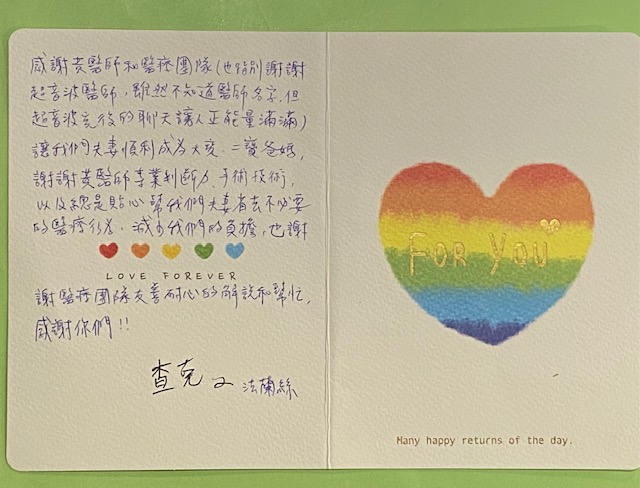 感謝黃醫師和醫療團隊(也特別謝謝
超音波醫師,雖然不知道醫師名字,但
超音波完後的聊天讓人正能量滿滿)
讓我們夫妻順利成為大寶、二寶爸媽,
謝謝黃醫師專業判斷力、手術技術,
以及總是貼心幫我們夫妻省去不必要
的醫療行為,減少我們的負擔,也謝
LOVE FOREVER
謝醫療團隊友善耐心的解說和幫忙,
感謝你們!!
查克 & 法蘭絲
FOR YOU
Many happy returns of the day.